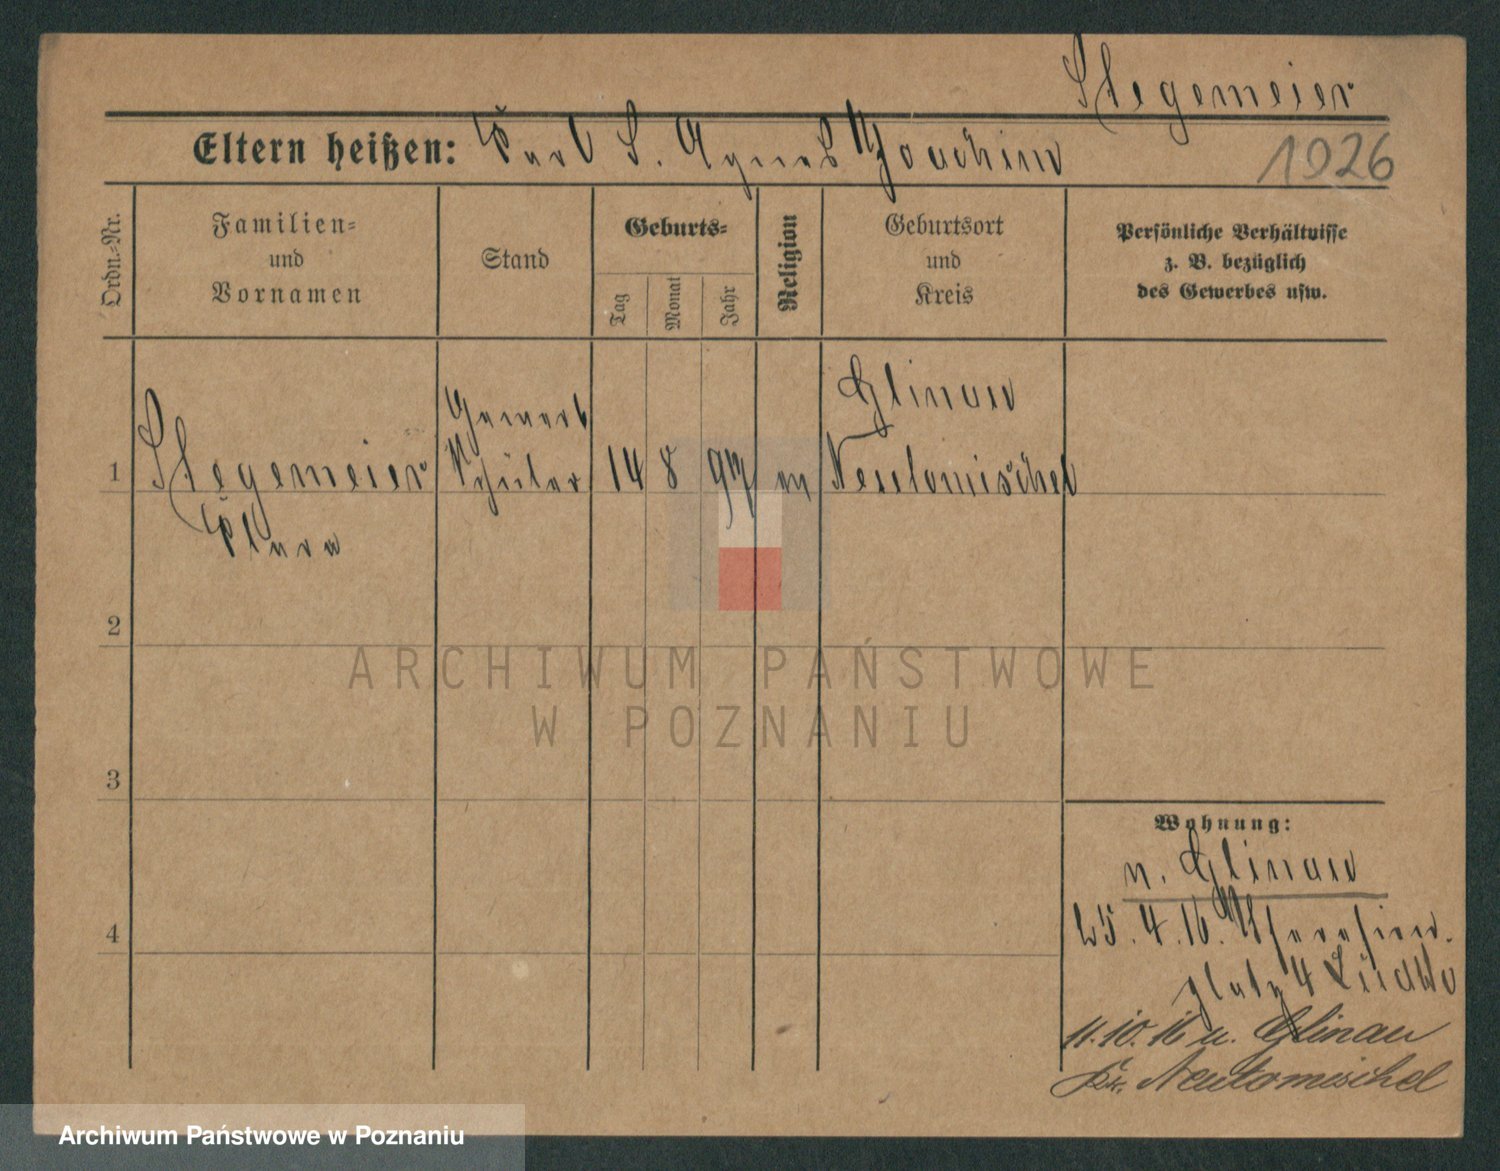 Stegemeier
Eltern heißen: Karl S. Agnes Joachim
1926
Ordn.-Nr.
Familien-
und
Vornamen
Stand
Geburts-
Tag
Monat
Jahr
Religion
Geburtsort
und
Kreis
Persönliche Verhältnisse
z. B. bezüglich
des Gewerbes usw.
1
Stegemeier
Klara
Gewerb
Schüler
14 8 97
Glinau
Neutomischel
2
ARCHIWUM PAŃSTWOWE
W POZNANIU
3
4
Wohnung:
n. Glinau
25.4.16.
platz 4
11.10.16 n. Glinau
Kr. Neutomischel
Archiwum Państwowe w Poznaniu